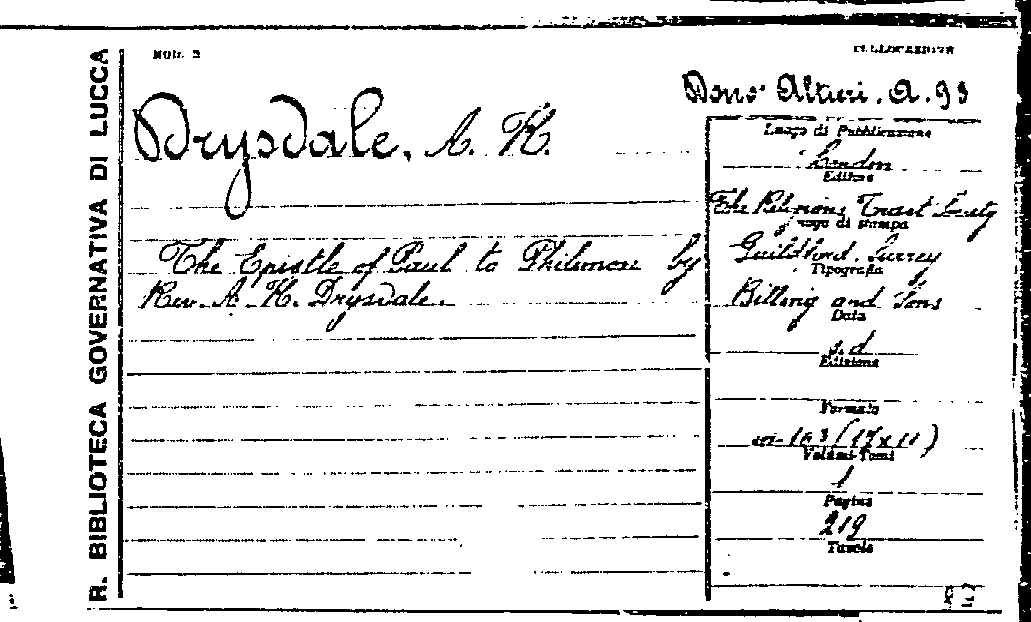 R. BIBLIOTECA GOVERNATIVA DI LUCCA
MOD. 2
COLLOCAZIONE
Dono Altieri. A. 93
Drysdale, A. H.
The Epistle of Paul to Philemon by
Rev. A. H. Drysdale.
Luogo di Pubblicazione
London
Editore
The Religious Tract Society
Luogo di stampa
Guildford. Surrey
Tipografia
Billing and Sons
Data
s. d
Edizione
Formato
in-16 3 (17 x 11)
Volumi-Tomi
1
Pagine
219
Tavole